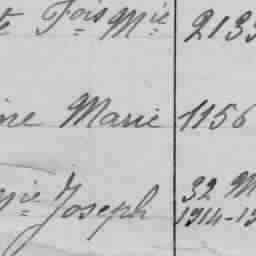 te Fois Mie 213
ine Marie 1156
Mie Joseph 32 M
1914-19